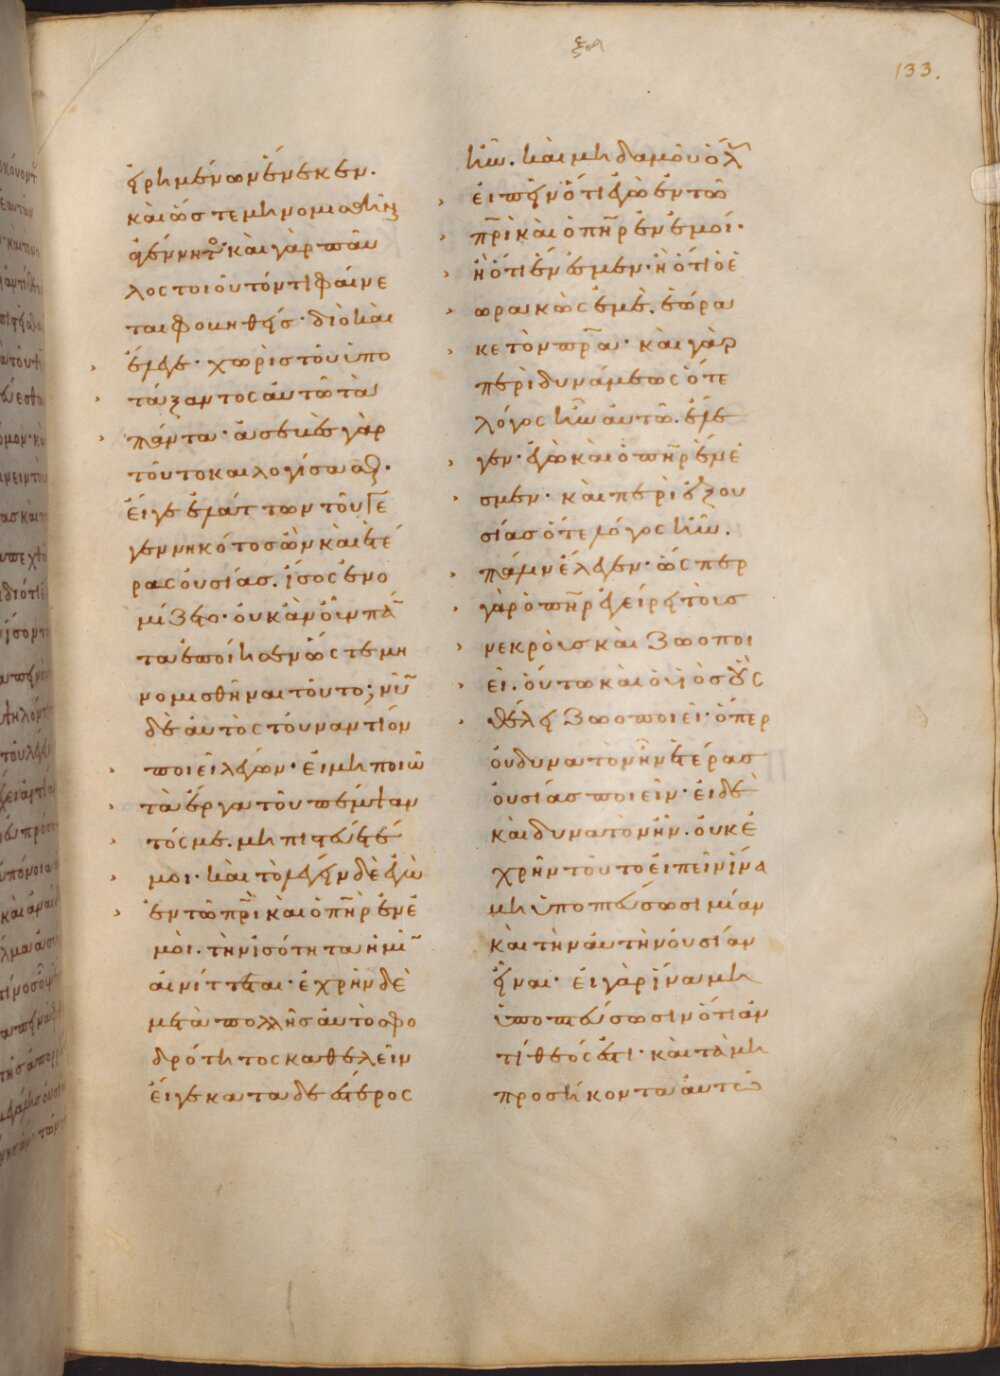 ξα
133.
εἰρημένων ἕνεκεν.
καὶ ὥστε μὴ νομισθῆναι
ἀγέννητος· καὶ γὰρ παῦ
λος τοιοῦτόν τι φαίνε
ται φοβηθεὶς· διὸ καὶ
ἔλεγε· χωρὶς τοῦ ὑπο
τάξαντος αὐτῶ τὰ
πάντα· ἀσεβὲς γὰρ
τοῦτο καὶ λογίσασθαι·
εἴ γε ἐλάττων τοῦ γε
γεννηκότος ὢν καὶ ἑτέ
ρας οὐσίας. ἴσος ἐνο
μίζετο· οὐκ ἂν οὖν πάν
τα ἐποίησεν ὥστε μὴ
νομισθῆναι τοῦτο; νῦν
δὲ αὐτὸς τοὐναντίον
ποιεῖ λέγων· εἰ μὴ ποιῶ
τὰ ἔργα τοῦ πέμψαν
τός με. μὴ πιστεύετέ
μοι· καὶ τὸ λέγειν δὲ ἐγὼ
ἐν τῶ πρὶ καὶ ὁ πὴρ ἐν ἐ
μοὶ. τὴν ἰσότητα ἡμῖν
αἰνίττεται· ἐχρῆν δὲ
μετὰ πολλῆς αὐτὸ σφο
δρότητος καθελεῖν
εἴ γε καταδεέστερος
ἦν. καὶ μηδαμοῦ ὅλως
εἰπεῖν ὅτι ἐγὼ ἐν τῶ
πρὶ καὶ ὁ πὴρ ἐν ἐμοί·
ἢ ὅτι ἕν ἐσμεν· ἢ ὅτι ὁ ἑ
ωρακὼς ἐμὲ. ἑώρα
κε τὸν πρα· καὶ γὰρ
περὶ δυνάμεως ὅτε
λόγος ἦν αὐτῶ. ἔλε
γεν· ἐγὼ καὶ ὁ πὴρ ἕν ἐ
σμεν· καὶ περὶ ἐξου
σίας ὅτε λόγος ἦν.
πάλιν ἔλεγεν· ὥσπερ
γὰρ ὁ πὴρ ἐγείρει τοὺς
νεκροὺς καὶ ζωοποι
εῖ. οὕτω καὶ ὁ υἱὸς οὓς
θέλει ζωοποιεῖ· ὅπερ
οὐ δυνατὸν ἦν ἑτέρας
οὐσίας ποιεῖν· εἰ δὲ
καὶ δυνατὸν ἦν. οὐκ ἐ
χρῆν τοῦτο εἰπεῖν ἵνα
μὴ ὑποπτεύσωσι μίαν
καὶ τὴν αὐτὴν οὐσίαν
εἶναι· εἰ γὰρ ἵνα μὴ
ὑποπτεύσωσιν ὅτι ἀν
τίθεός ἐστι· καὶ τὰ μὴ
προσήκοντα αὐτῶ